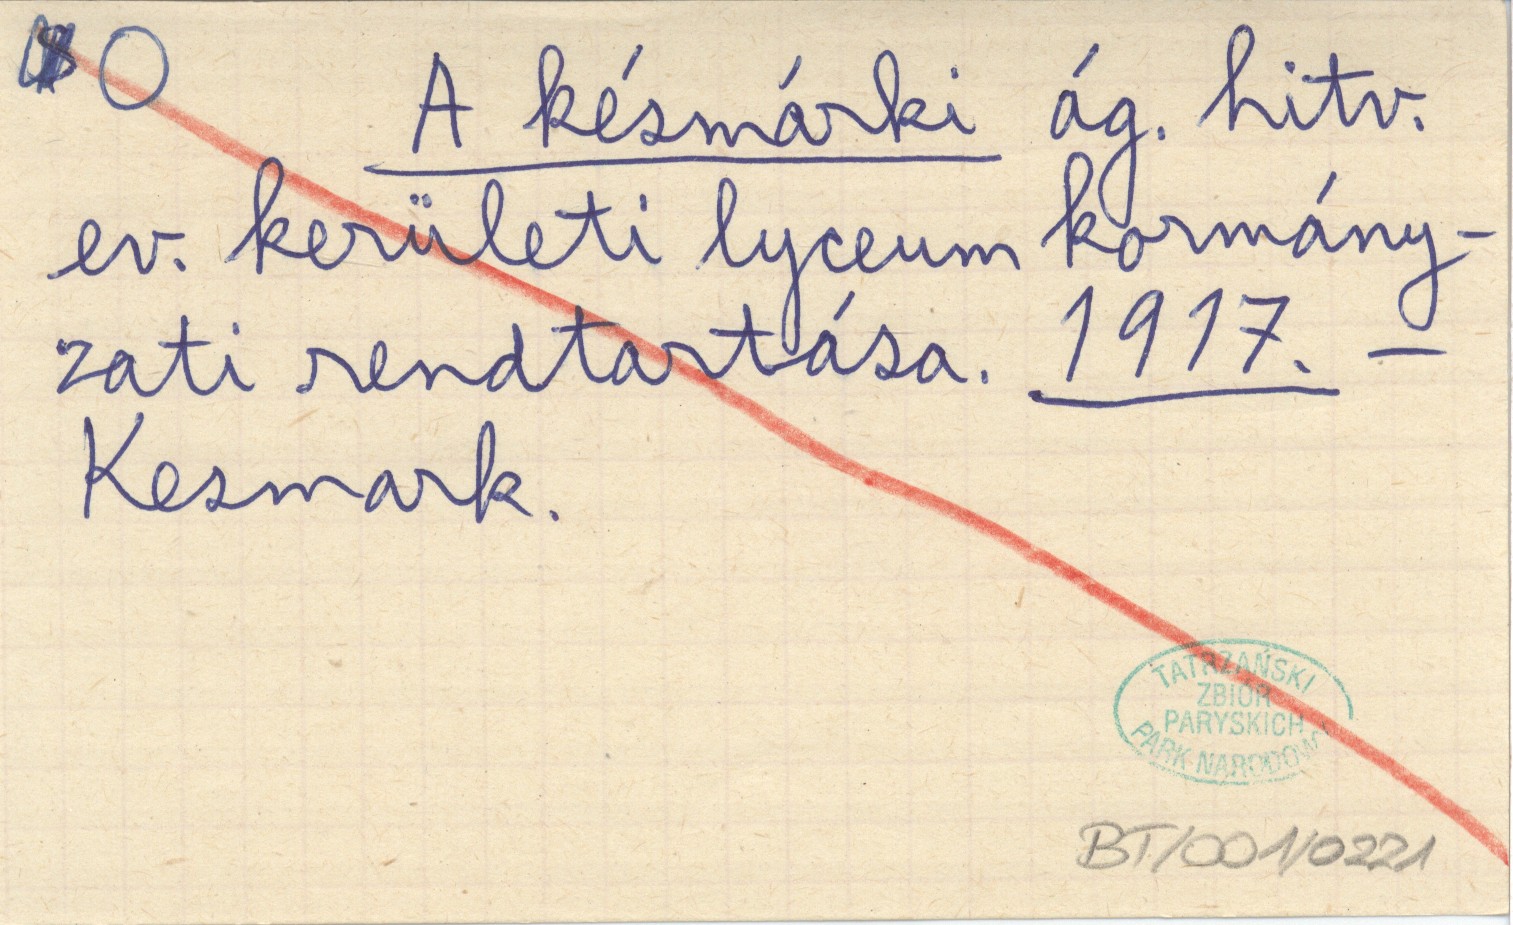 O
A késmárki ág. hitv.
ev. kerületi lyceum kormány-
zati rendtartása. 1917. —
Kesmark.
TATRZAŃSKI
ZBIÓR
PARYSKICH
PARK NARODOW
BT/001/0221